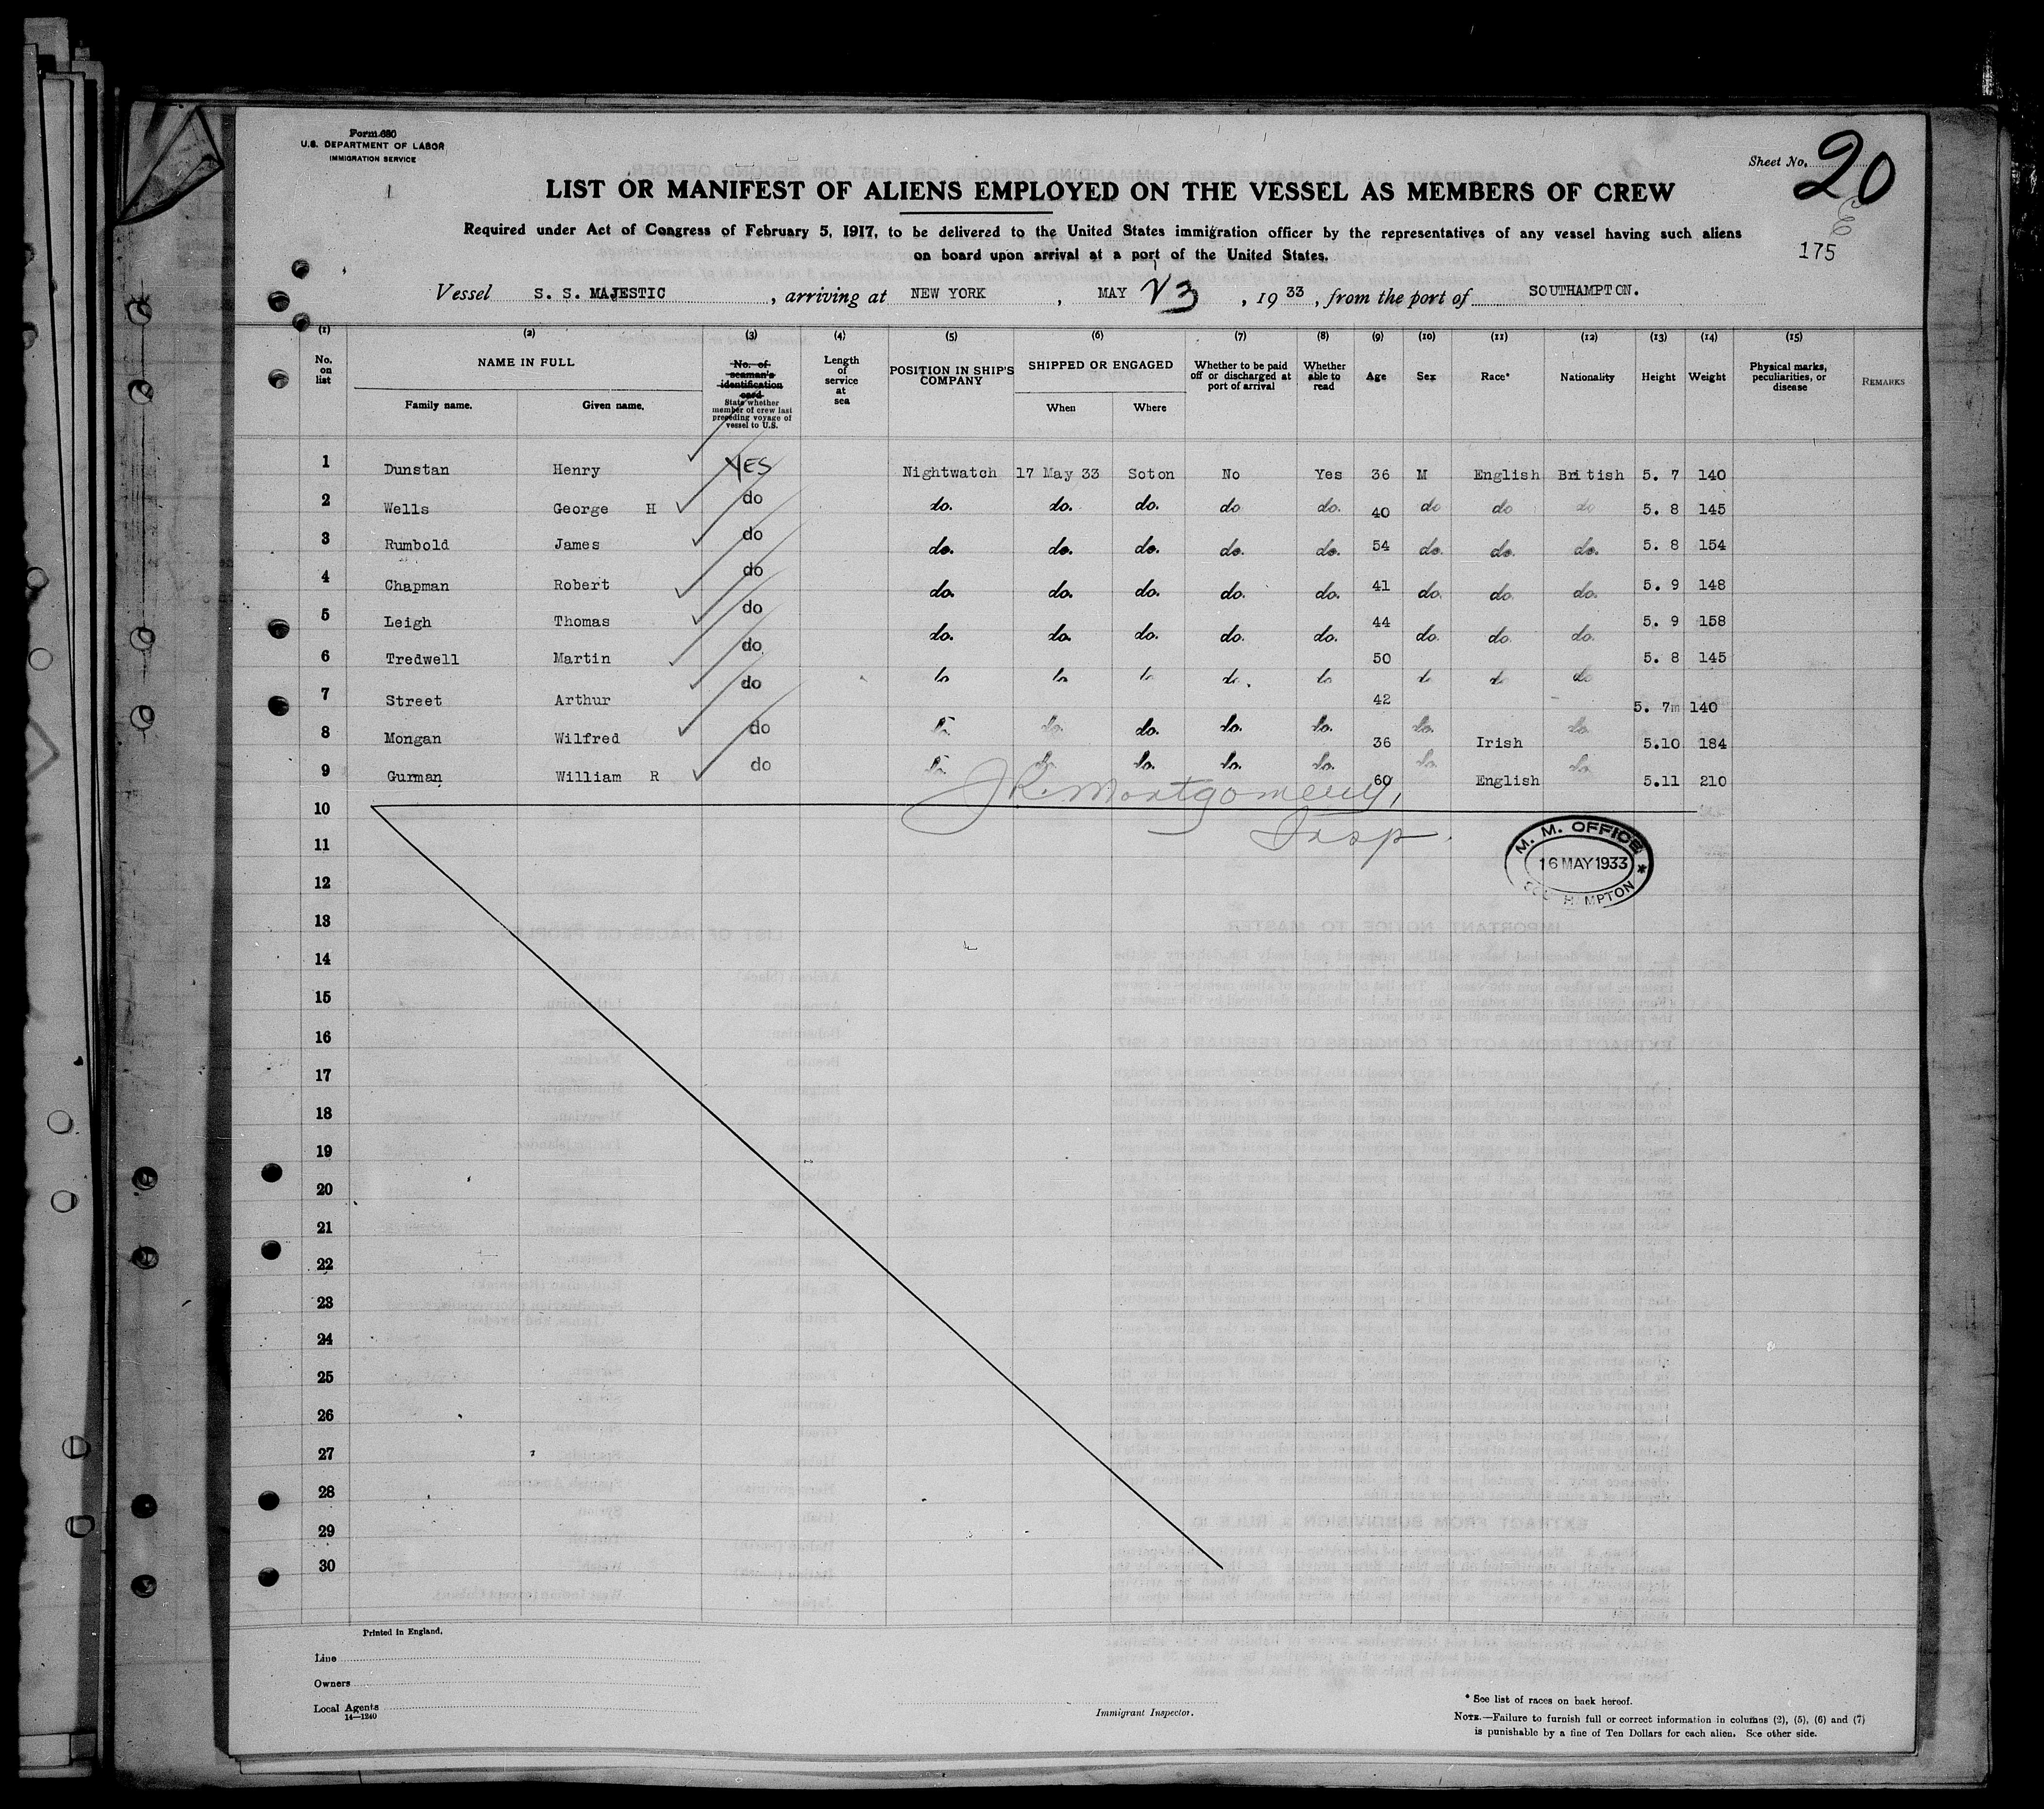 Form 680
U.S. DEPARTMENT OF LABOR
IMMIGRATION SERVICE
Sheet No. 20
175
LIST OR MANIFEST OF ALIENS EMPLOYED ON THE VESSEL AS MEMBERS OF CREW
Required under Act of Congress of February 5, 1917, to be delivered to the United States immigration officer by the representatives of any vessel having such aliens
on board upon arrival at a port of the United States.
Vessel S. S. MAJESTIC, arriving at NEW YORK, MAY 23, 1933, from the port of SOUTHAMPTON.
(1) (2) (3) (4) (5) (6) (7) (8) (9) (10) (11) (12) (13) (14) (15)
No. on list
NAME IN FULL
Family name. Given name.
No. of seaman's identification card
State whether member of crew last preceding voyage of vessel to U.S.
Length of service at sea
POSITION IN SHIP'S COMPANY
SHIPPED OR ENGAGED
When Where
Whether to be paid off or discharged at port of arrival
Whether able to read
Age
Sex
Race*
Nationality
Height
Weight
Physical marks, peculiarities, or disease
REMARKS
1 Dunstan Henry YES Nightwatch 17 May 33 Soton No Yes 36 M English British 5. 7 140
2 Wells George H do do. do. do. do do. 40 do do do 5. 8 145
3 Rumbold James do do. do. do. do. do. 54 do. do. do. 5. 8 154
4 Chapman Robert do do. do. do. do. do. 41 do. do. do. 5. 9 148
5 Leigh Thomas do do. do. do. do. do. 44 do. do. do. 5. 9 158
6 Tredwell Martin do do do do do. do 50 do do do 5. 8 145
7 Street Arthur do do do. do. do. do. 42 do. do. 5. 7m 140
8 Mongan Wilfred do do do. do. do. do. 36 do. Irish do. 5.10 184
9 Gurman William R do 60 English 5.11 210
J.R. Montgomery,
Insp.
10
11
12
13
14
15
16
17
18
19
20
21
22
23
24
25
26
27
28
29
30
M. M. OFFICE
16 MAY 1933
Printed in England.
Line
Owners
Local Agents
14—1240
Immigrant Inspector.
* See list of races on back hereof.
NOTE.—Failure to furnish full or correct information in columns (2), (5), (6) and (7)
is punishable by a fine of Ten Dollars for each alien. See other side.